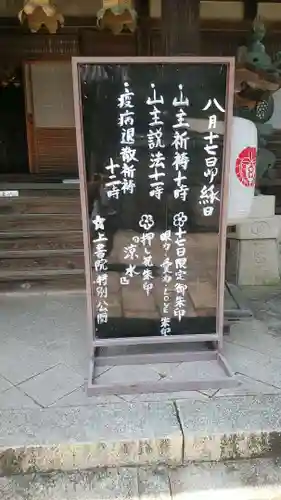 八月十七日(日)縁日
△山主祈祷十時
△山主説法十一時
疫病退散祈祷
十二時
十七日限定御朱印
朱印
押し花朱印
の「涼水」
☆上書院特別公開